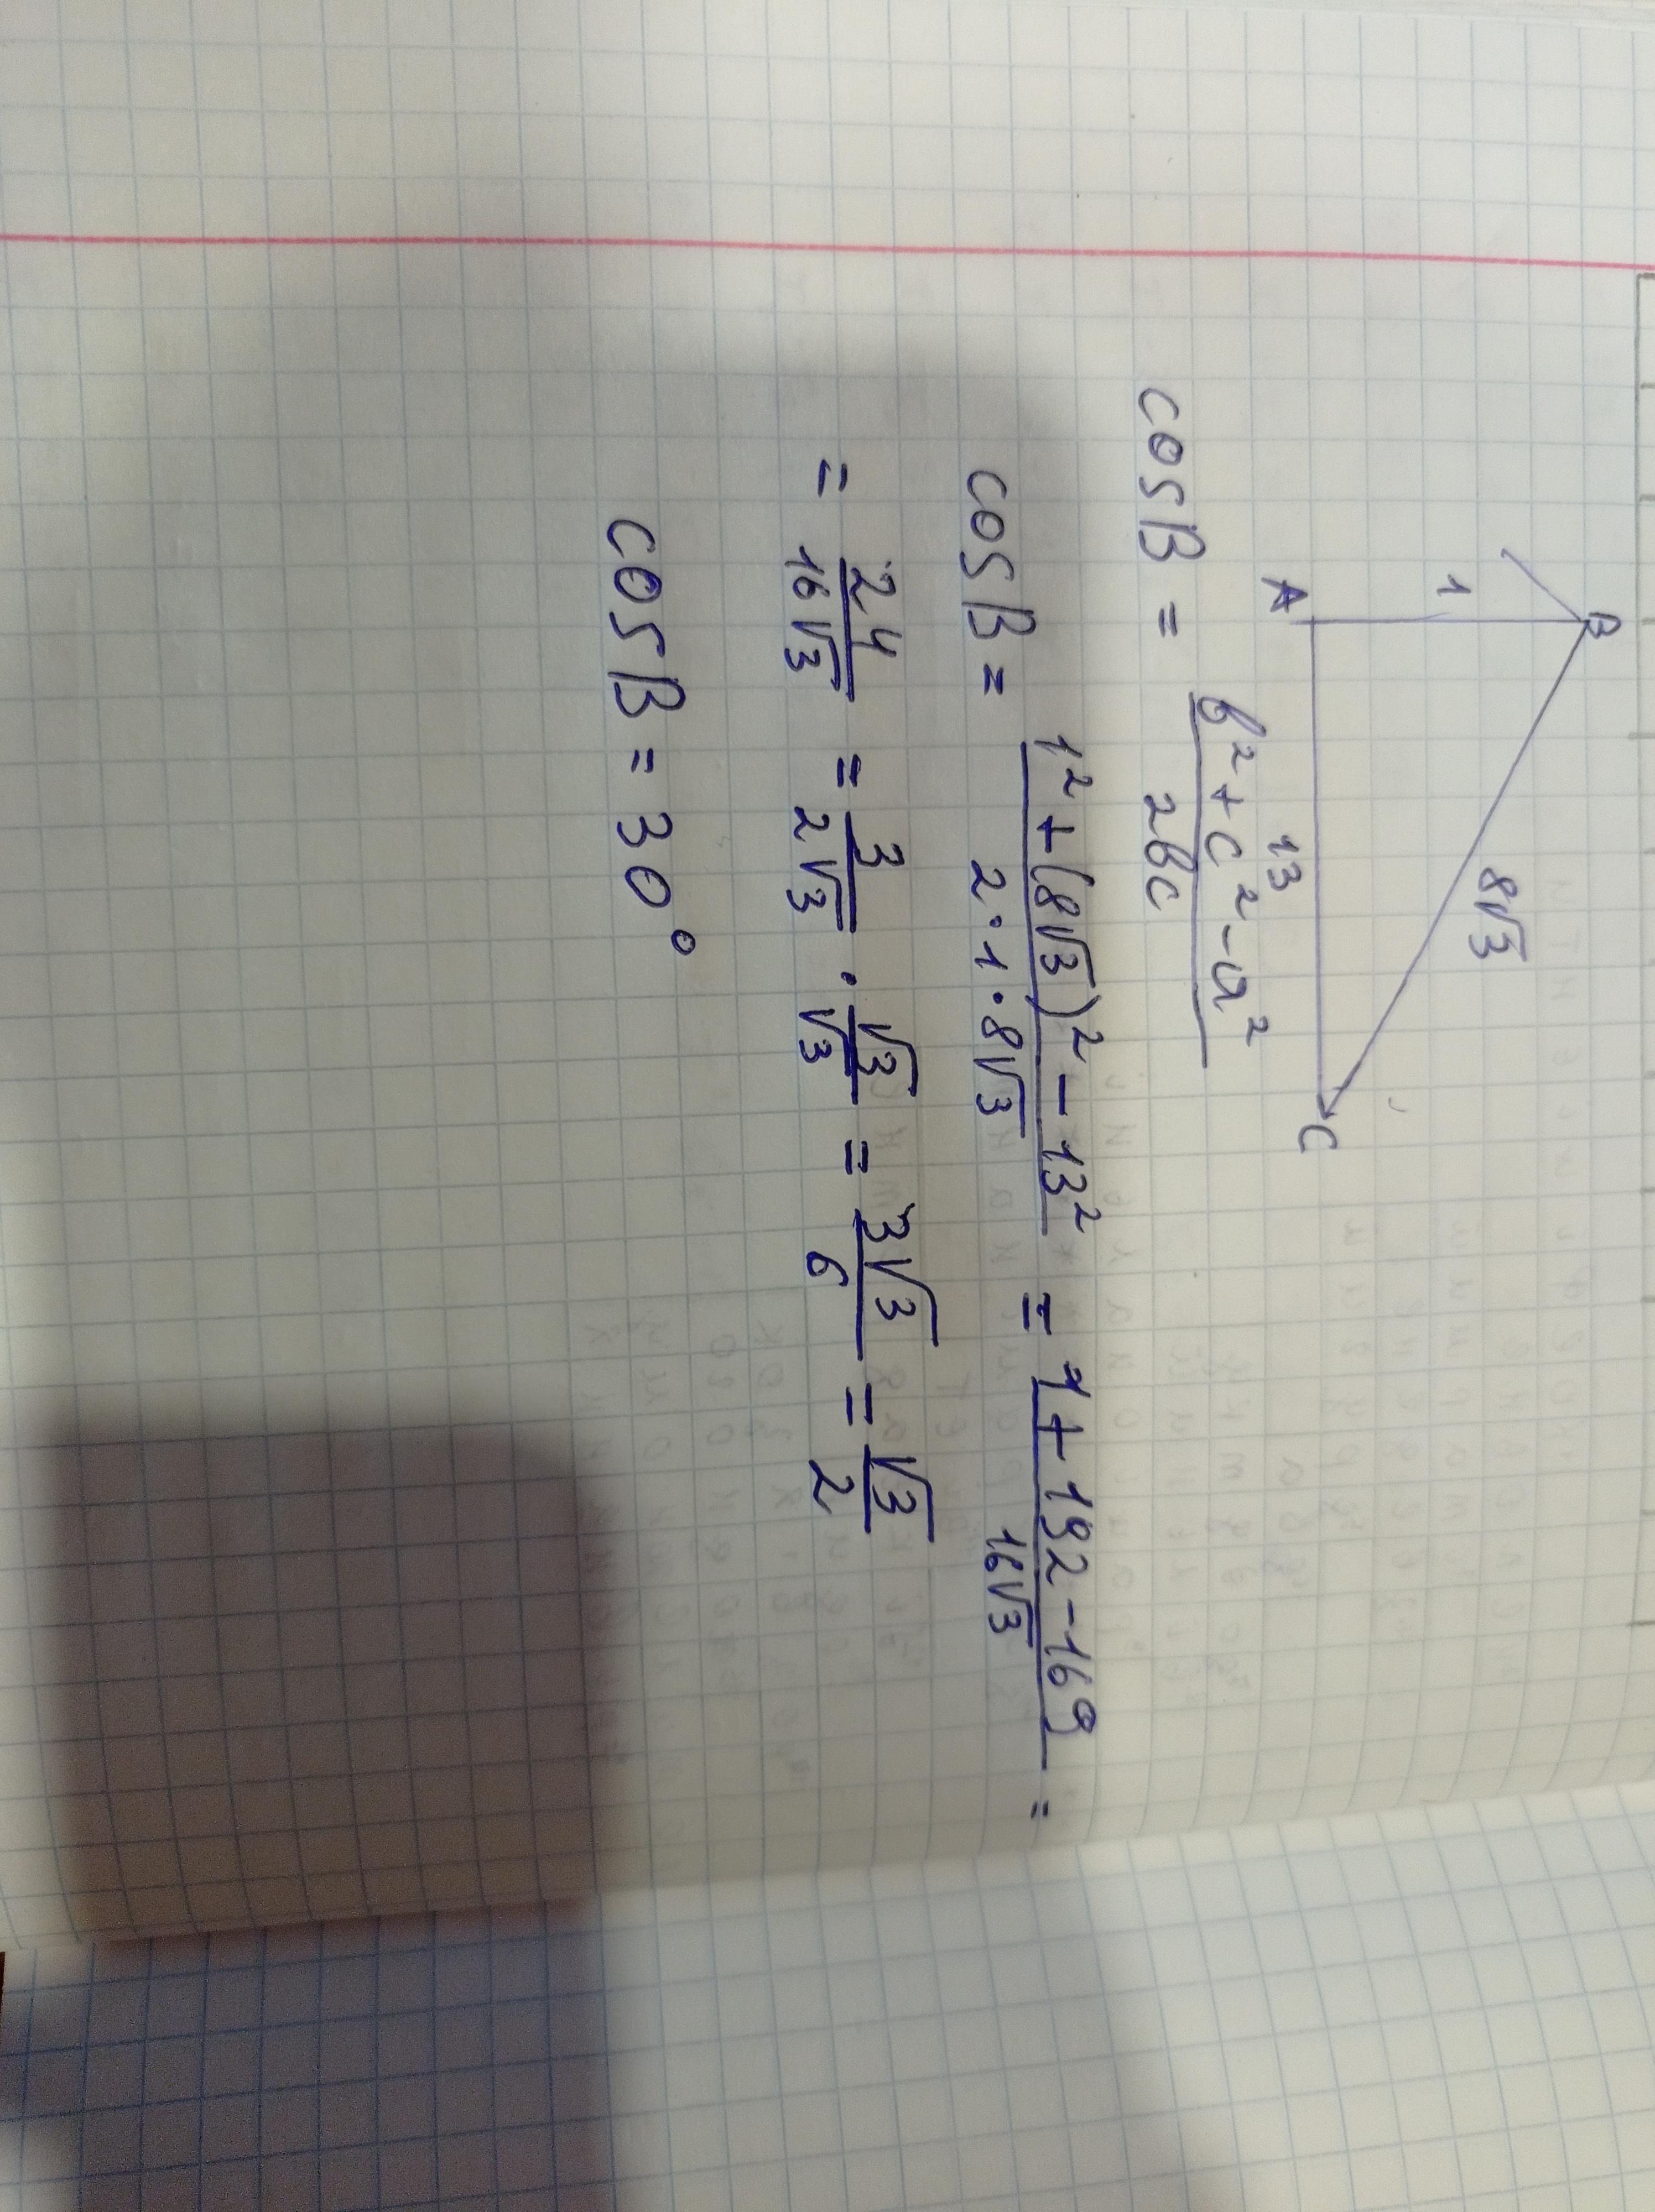 B
1
8√3
A
13
C
cosB = (b² + c² - a²) / 2bc
cosB = (1² + (8√3)² - 13²) / (2 · 1 · 8√3) = (1 + 192 - 169) / 16√3 =
= 24 / 16√3 = 3 / 2√3 · √3 / √3 = 3√3 / 6 = √3 / 2
cosB = 30°